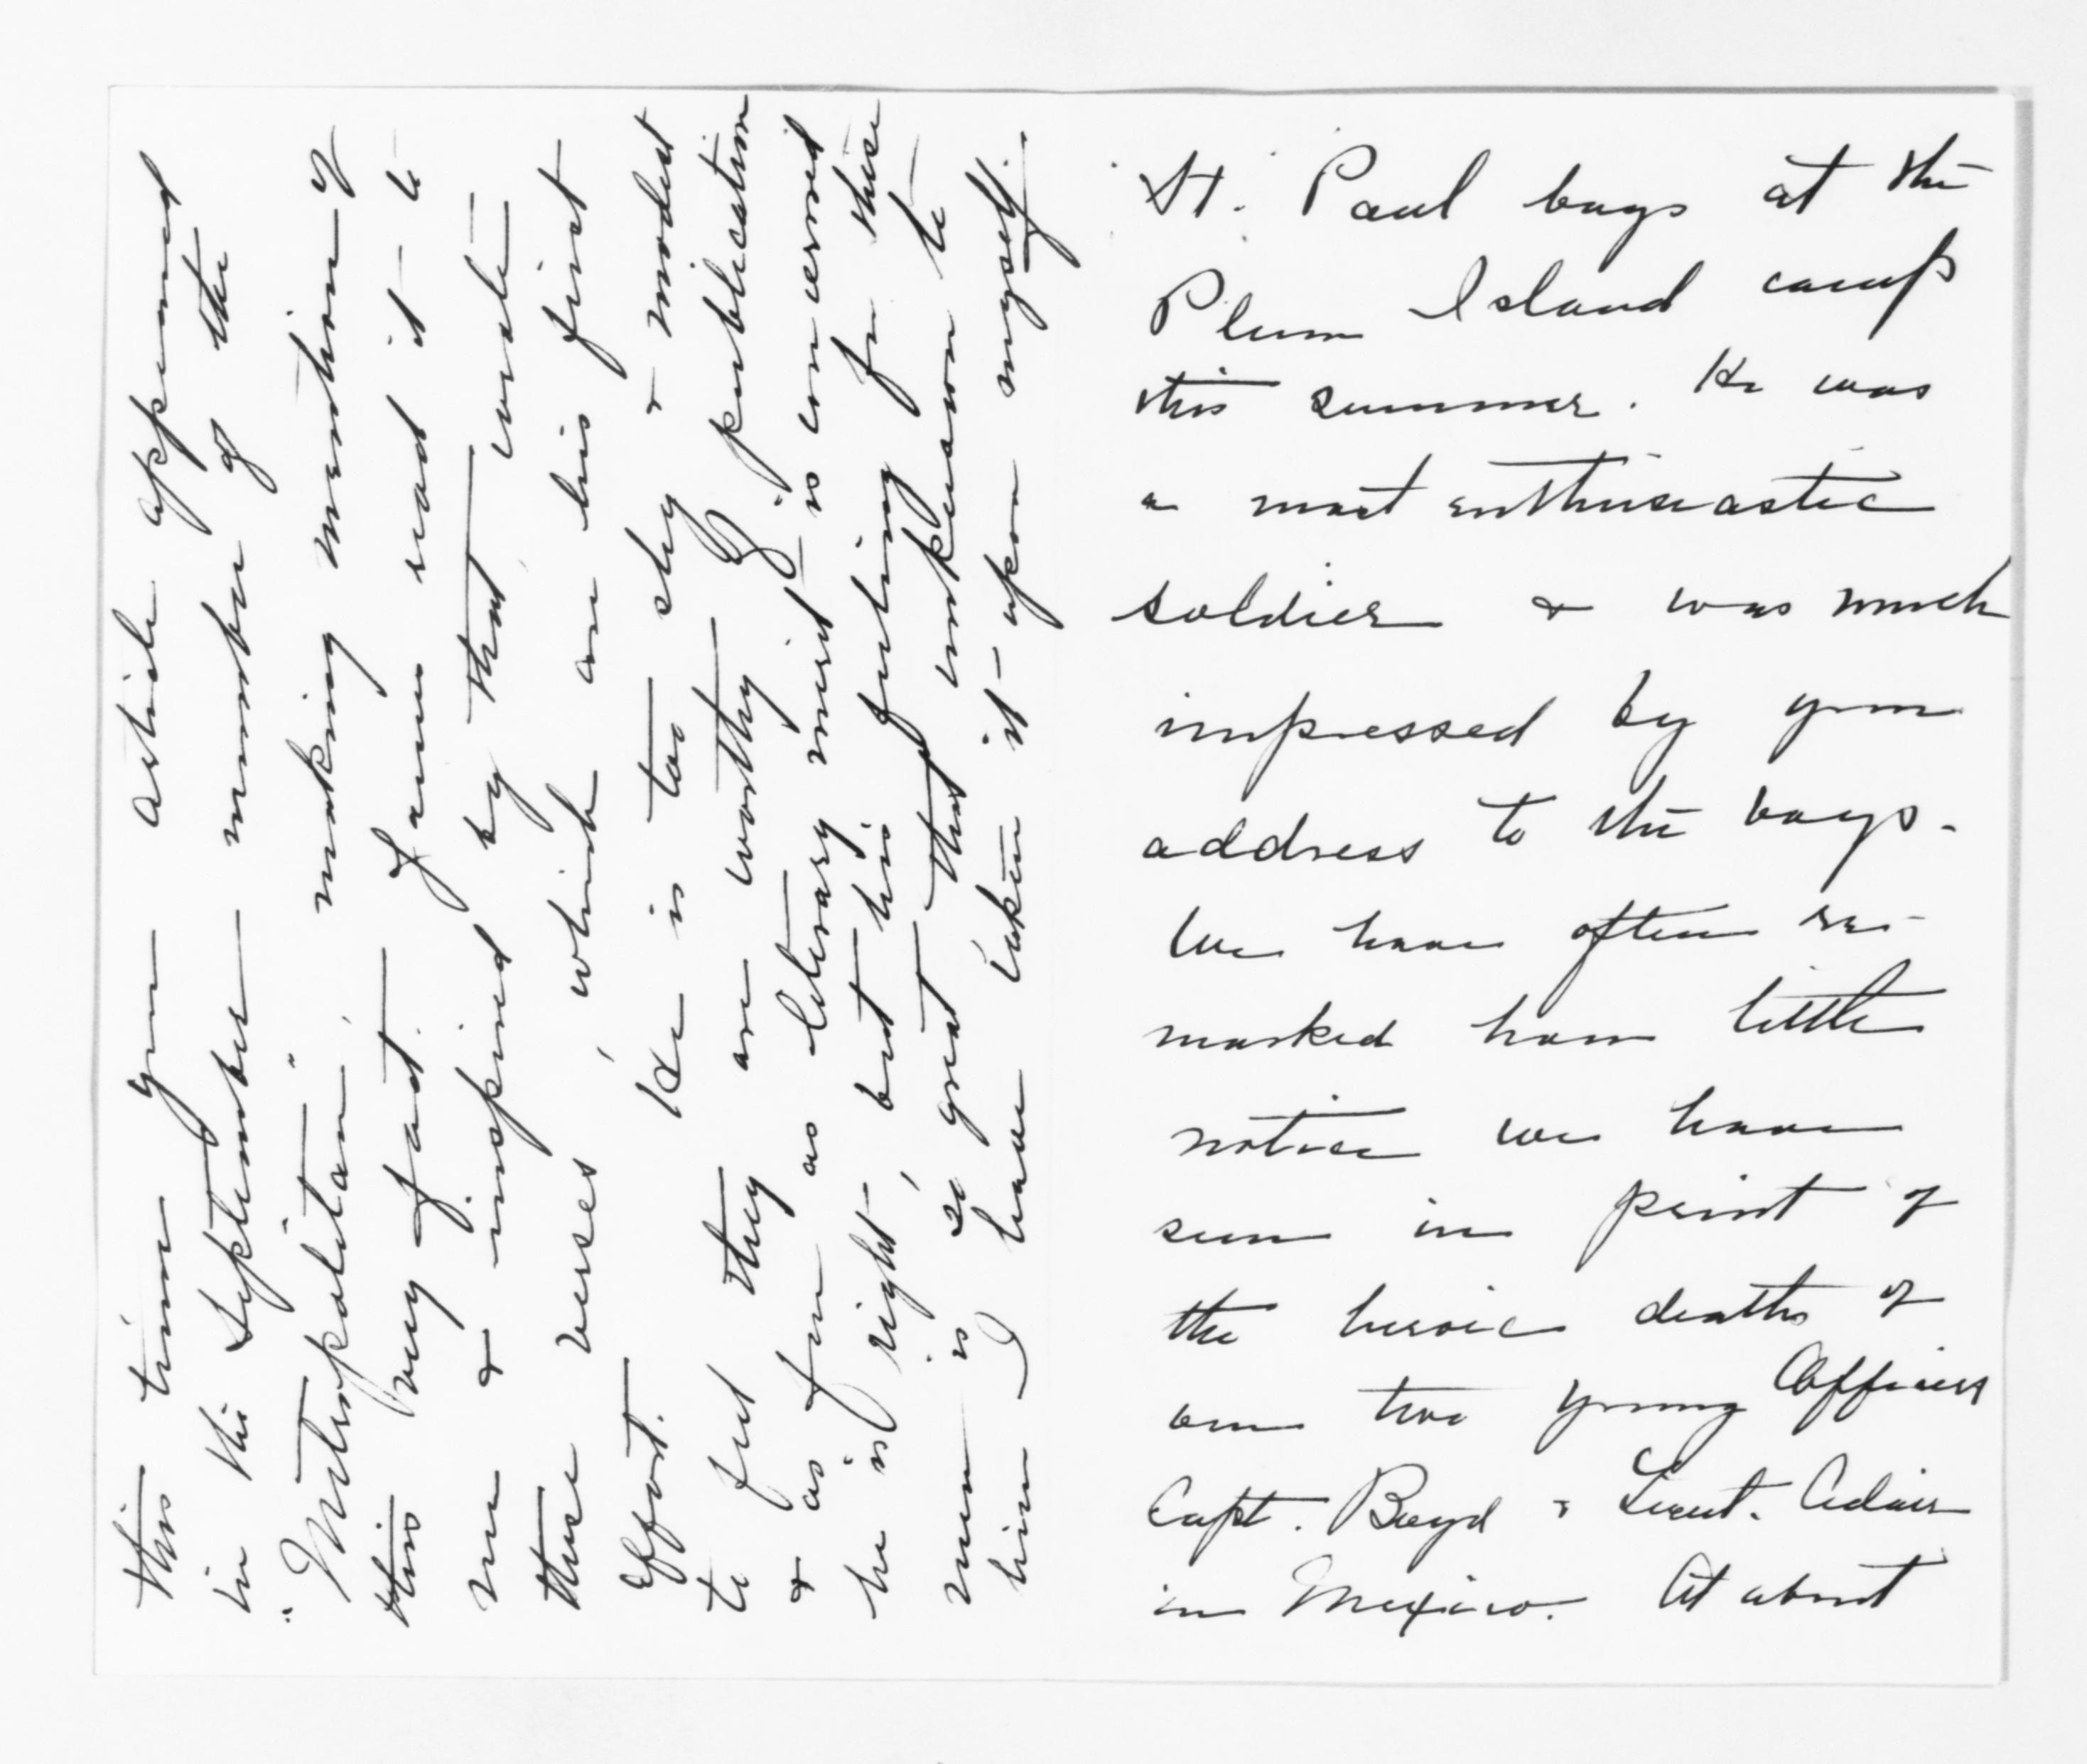 St. Paul boys at the
Plum Island camp
this summer. He was
a most enthusiastic
soldier & was much
impressed by your
address to the boys.
We have often re-
marked how little
notice we have
seen in print of
the heroic deaths of
our two young Officers
Capt. Boyd & Lieut. Adair
in Mexico. At about
this time your article appeared
in the September number of the
"Metropolitan" making mention of
this very fact. James read it to
me & inspired by that wrote
these verses, which are his first
Effort. He is too shy & modest
to feel they are worthy of publication
& as far as literary merit is concerned
he is right, but his feeling for these
men is so great that unknown to
him I have taken it upon myself